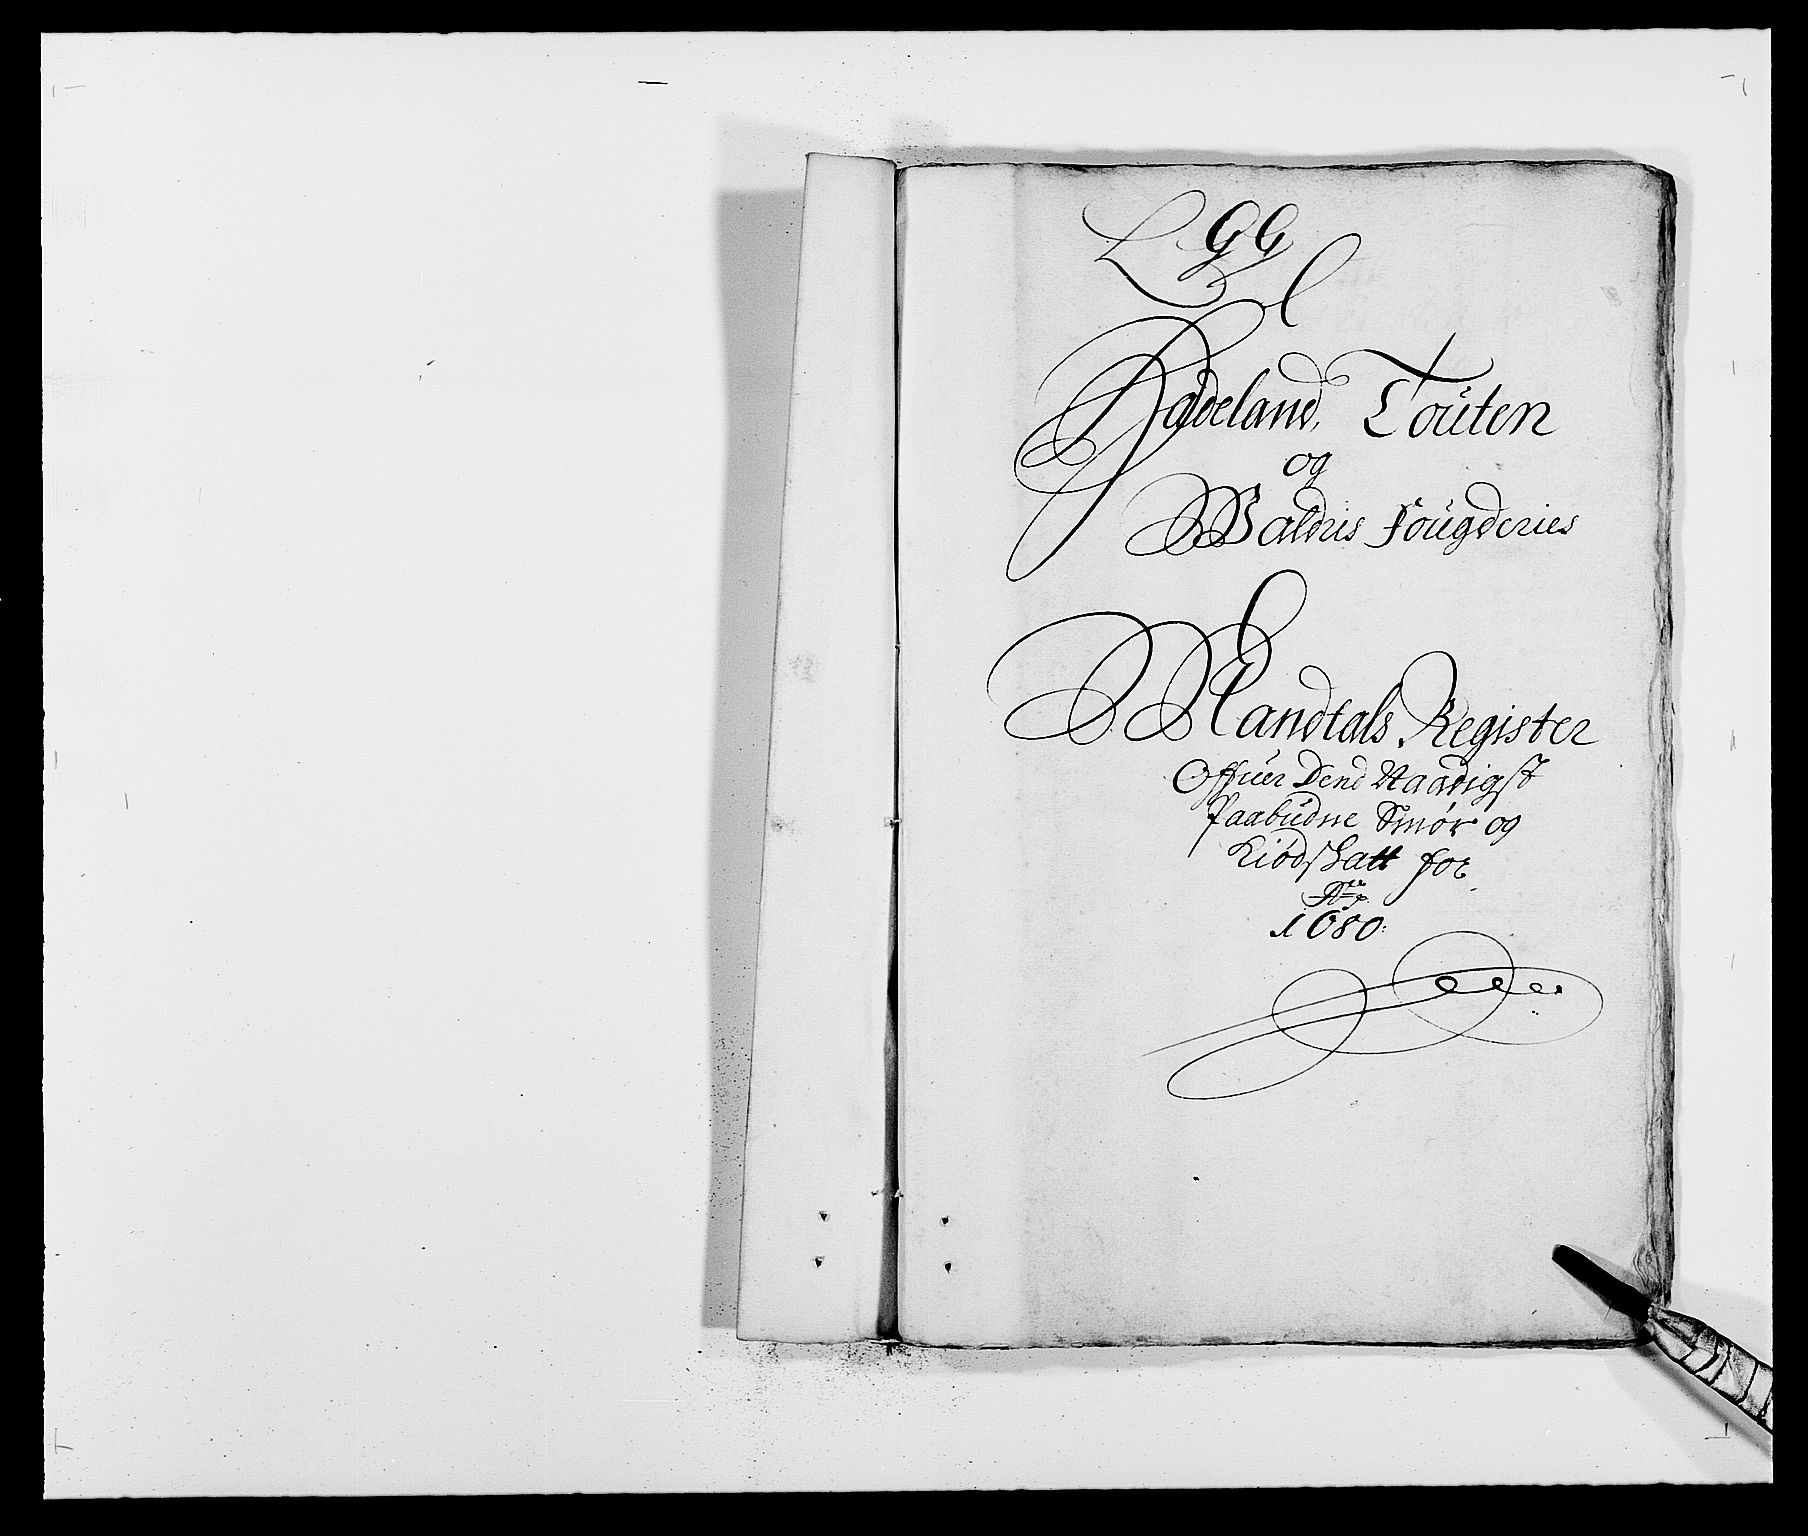 L GG
Hadeland, Touten
og
Waldris Fougderies
Mandtals Register
Offuer Dend Naadigst
Paabudne Smør og
Kiødskatt for
Ao
1680